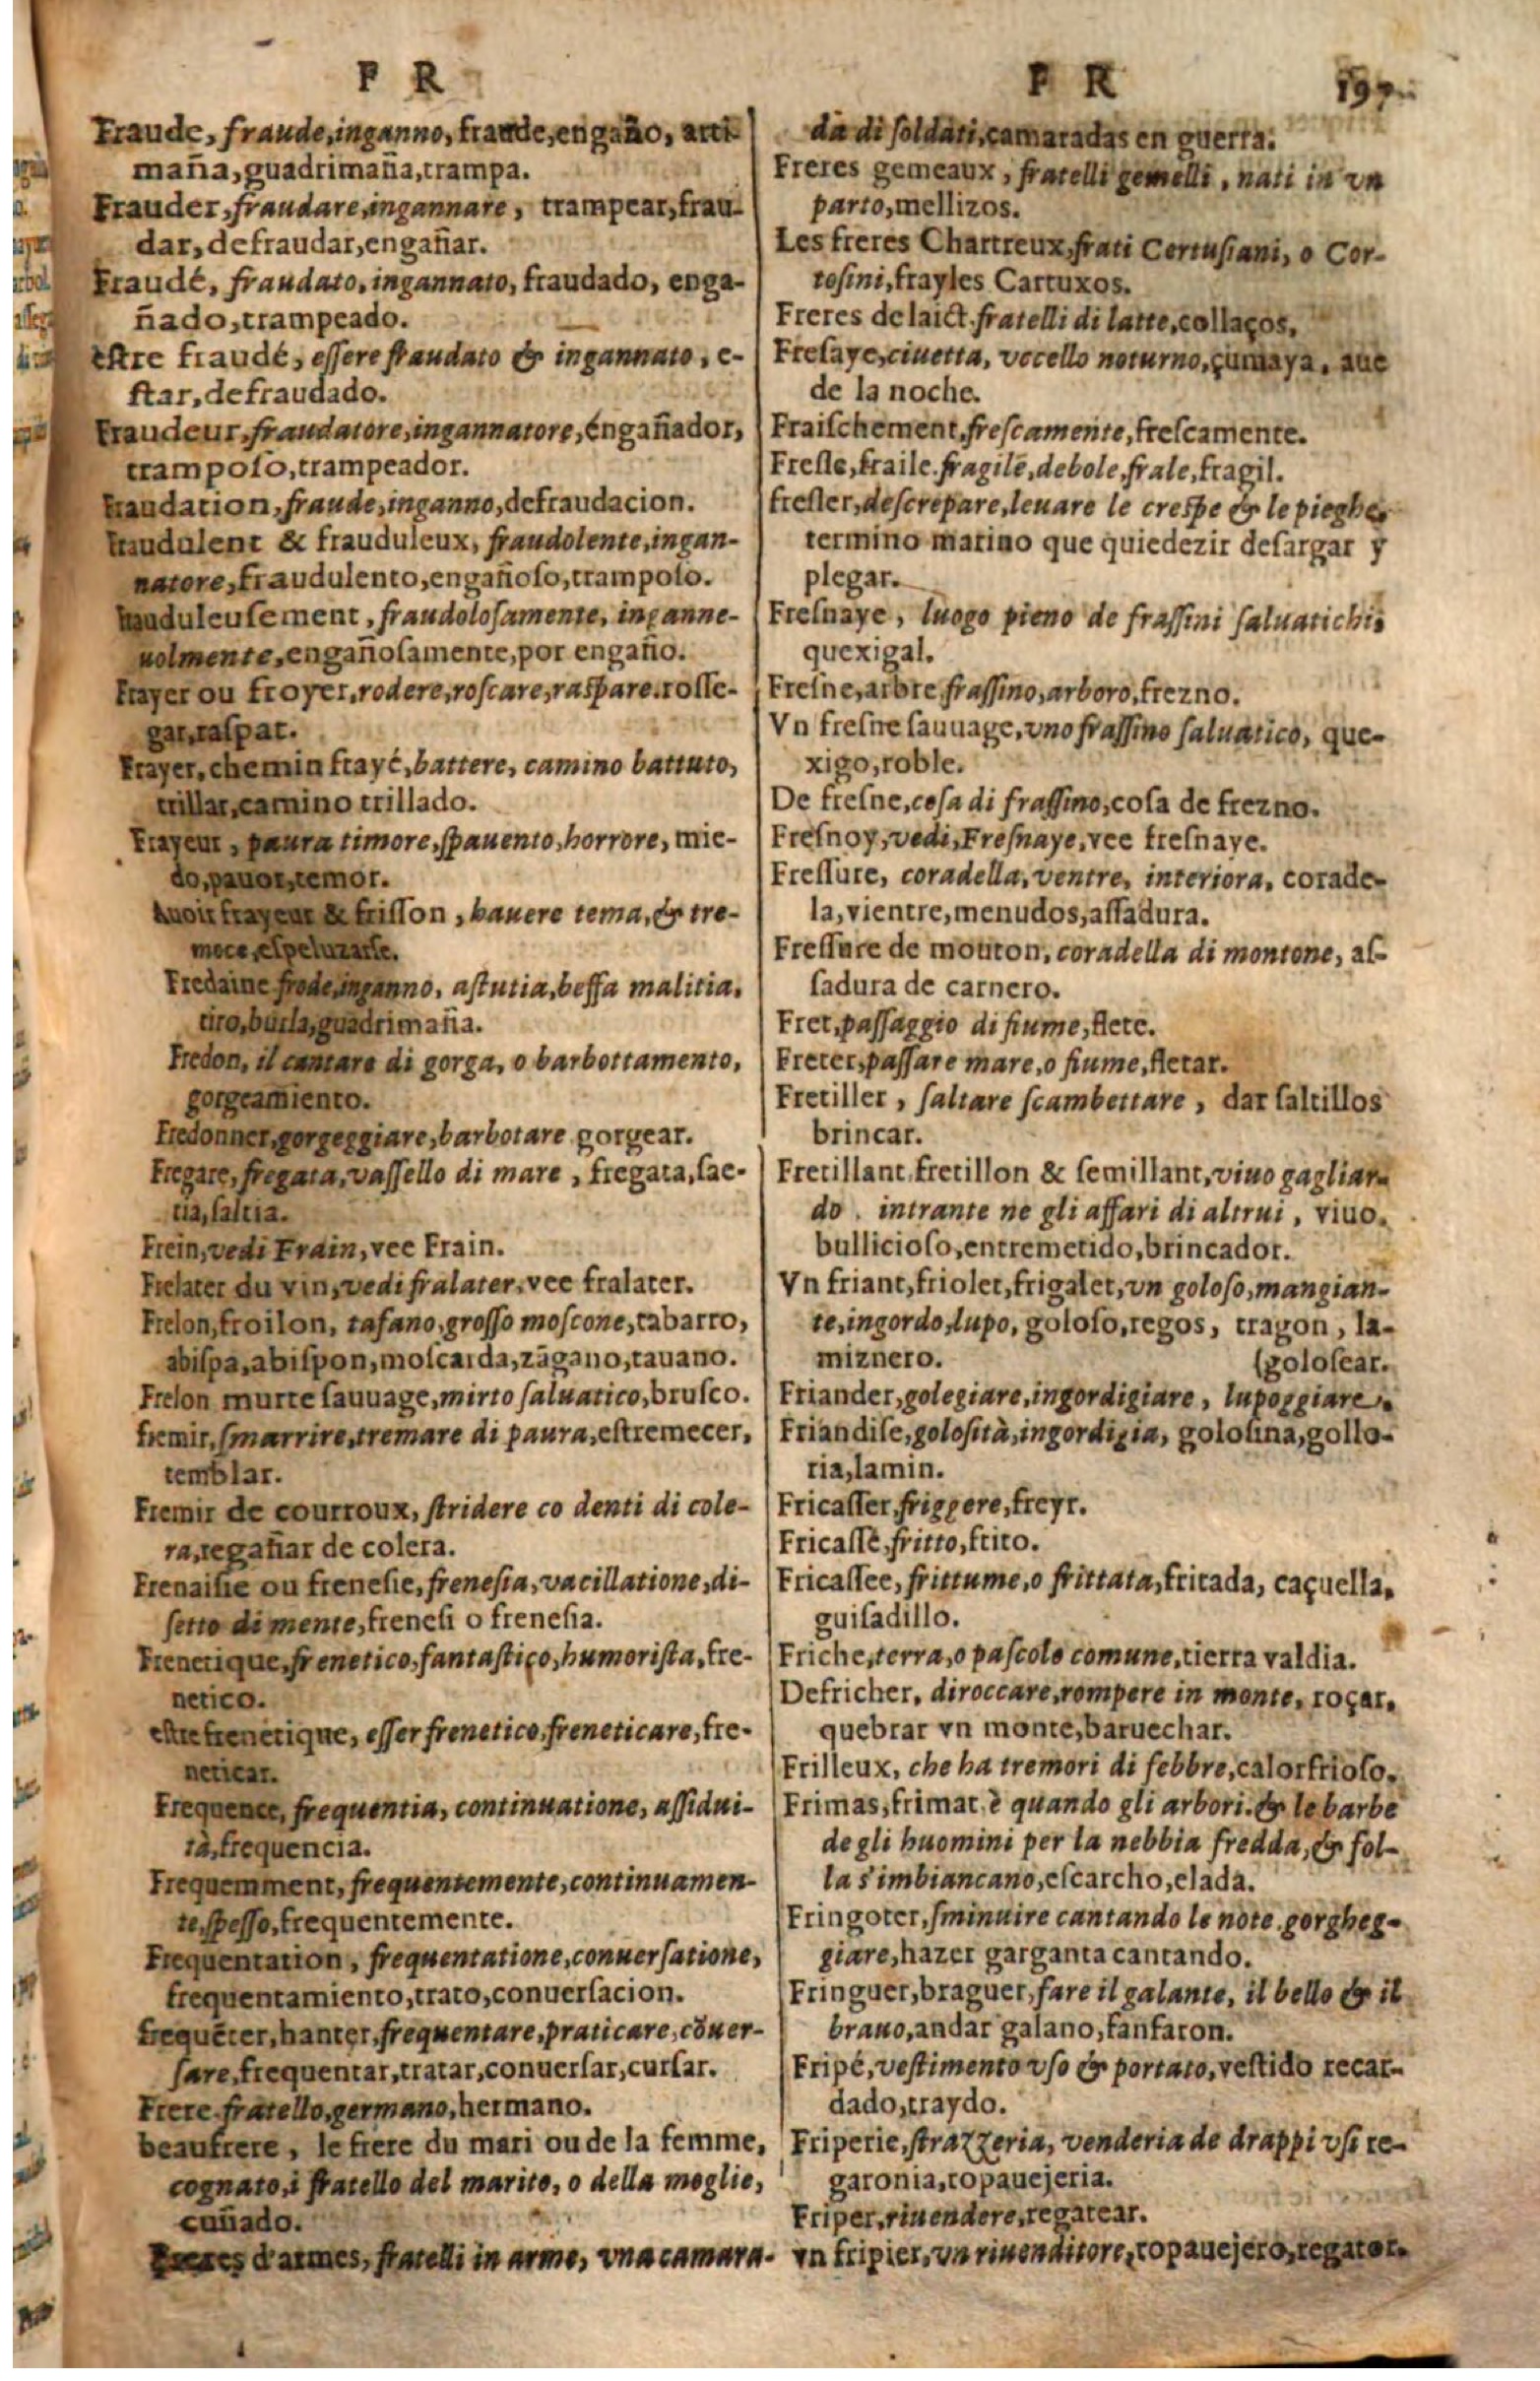 F R
Fraude, fraude, inganno, fraude, engaño, arti-
maña, guadrimaña, trampa.
Frauder, fraudare, ingannare, trampear, frau-
dar, defraudar, engañar.
Fraudé, fraudato, ingannato, fraudado, enga-
ñado, trampeado.
estre fraudé, essere fraudato & ingannato, e-
star, defraudado.
Fraudeur, fraudatore, ingannatore, éngañador,
tramposo, trampeador.
fraudation, fraude, inganno, defraudacion.
fraudulent & frauduleux, fraudolente, ingan-
natore, fraudulento, engañoso, tramposo.
frauduleusement, fraudolosamente, inganne-
uolmente, engañosamente, por engaño.
Frayer ou froyer, rodere, roscare, raspare. rosse-
gar, raspar.
Frayer, chemin frayé, battere, camino battuto,
trillar, camino trillado.
Frayeur, paura timore, spauento, horrore, mie-
do, pauor, temor.
Auoir frayeur & frisson, hauere tema, & tre-
moce, espeluzarse.
Fredaine frode, inganno, astutia, beffa malitia,
tiro, burla, guadrimaña.
Fredon, il cantare di gorga, o barbottamento,
gorgeamiento.
Fredonner, gorgeggiare, barbotare gorgear.
Fregate, fregata, vassello di mare, fregata, sae-
tia, saltia.
Frein, vedi Frain, vee Frain.
Frelater du vin, vedi fralater, vee fralater.
Frelon, froilon, tafano, grosso moscone, tabarro,
abispa, abispon, moscarda, zãgano, tauano.
Frelon murte sauuage, mirto saluatico, brusco.
fremir, smarrire, tremare di paura, estremecer,
temblar.
Fremir de courroux, stridere co denti di cole-
ra, regañar de colera.
Frenaisie ou frenesie, frenesia, vacillatione, di-
fetto di mente, frenesi o frenesia.
Frenetique, frenetico, fantastico, humorista, fre-
netico.
estre frenetique, esser frenetico, freneticare, fre-
neticar.
Frequence, frequentia, continuatione, assidui-
tà, frequencia.
Frequemment, frequentemente, continuamen-
te, spesso, frequentemente.
Frequentation, frequentatione, conuersatione,
frequentamiento, trato, conuersacion.
frequẽter, hanter, frequentare, praticare, cõuer-
sare, frequentar, tratar, conuersar, cursar.
Frere fratello, germano, hermano.
beaufrere, le frere du mari ou de la femme,
cognato, i fratello del marito, o della moglie,
cuñado.
Freres d'armes, fratelli in arme, vna camara-
F R 197
da di soldati, camaradas en guerra.
Freres gemeaux, fratelli gemelli, nati in vn
parto, mellizos.
Les freres Chartreux, frati Certusiani, o Cer-
tosini, frayles Cartuxos.
Freres de laict. fratelli di latte, collaços,
Fresaye, ciuetta, vccello noturno, çumaya, aue
de la noche.
Fraischement, frescamente, frescamente.
Fresle, fraile. fragile, debole, frale, fragil.
fresler, descrepare, leuare le crespe & le pieghe,
termino marino que quiedezir desargar y
plegar.
Fresnaye, luogo pieno de frassini saluatichi,
quexigal.
Fresne, arbre frassino, arboro, frezno.
Vn fresne sauuage, vno frassino saluatico, que-
xigo, roble.
De fresne, cosa di frassino, cosa de frezno.
Fresnoy, vedi, Fresnaye, vee fresnaye.
Fressure, coradella, ventre, interiora, corade-
la, vientre, menudos, assadura.
Fressure de mouton, coradella di montone, as-
sadura de carnero.
Fret, passaggio di fiume, flete.
Freter, passare mare, o fiume, fletar.
Fretiller, saltare scambettare, dar saltillos
brincar.
Fretillant, fretillon & semillant, viuo gagliar-
do. intrante ne gli affari di altrui, viuo,
bullicioso, entremetido, brincador.
Vn friant, friolet, frigalet, vn goloso, mangian-
te, ingordo, lupo, goloso, regos, tragon, la-
miznero. (golosear.
Friander, golegiare, ingordigiare, lupoggiare,
Friandise, golosità, ingordigia, golosina, gollo-
ria, lamin.
Fricasser, friggere, freyr.
Fricassè, fritto, frito.
Fricassee, frittume, o frittata, fritada, caçuella,
guisadillo.
Friche, terra, o pascolo comune, tierra valdia.
Defricher, diroccare, rompere in monte, roçar,
quebrar vn monte, baruechar.
Frilleux, che ha tremori di febbre, calorfrioso.
Frimas, frimat è quando gli arbori. & le barbe
de gli huomini per la nebbia fredda, & fol-
la s'imbiancano, escarcho, elada.
Fringoter, sminuire cantando le note gorgheg-
giare, hazer garganta cantando.
Fringuer, braguer, fare il galante, il bello & il
brauo, andar galano, fanfaron.
Fripé, vestimento vso & portato, vestido recar-
dado, traydo.
Friperie, strazzeria, venderia de drappi vsi re-
garonia, ropauejeria.
Friper, riuendere, regatear.
vn fripier, vn riuenditore, ropauejero, regator.